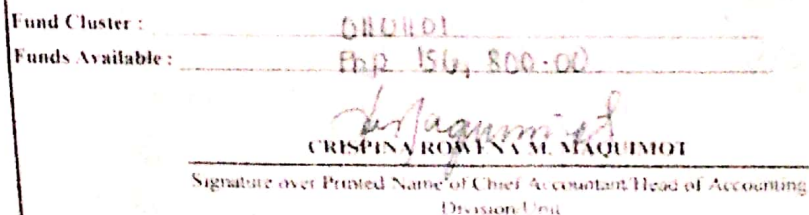 Fund Cluster :
Funds Available : Php 156, 800.00
CRISPINA ROWENA M. MAQUIMOT
Signature over Printed Name of Chief Accountant/Head of Accounting
Division/Unit